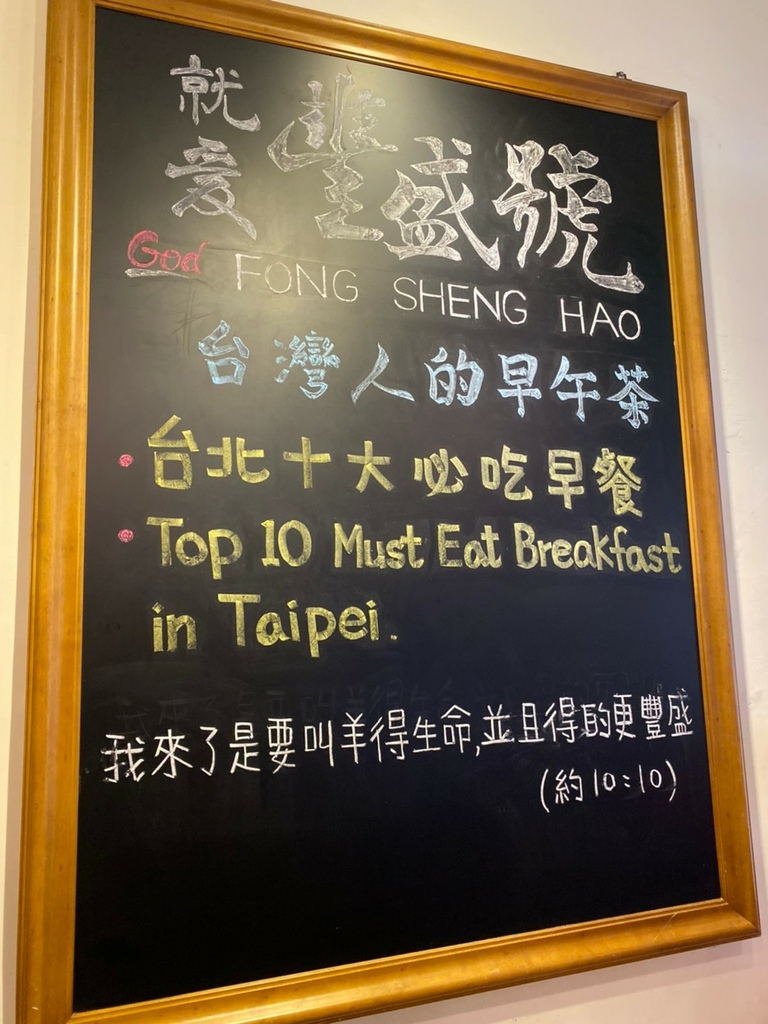 就愛豐盛號
God FONG SHENG HAO
台灣人的早午茶
• 台北十大必吃早餐
• Top 10 Must Eat Breakfast
in Taipei.
我來了是要叫羊得生命,並且得的更豐盛
(約10:10)